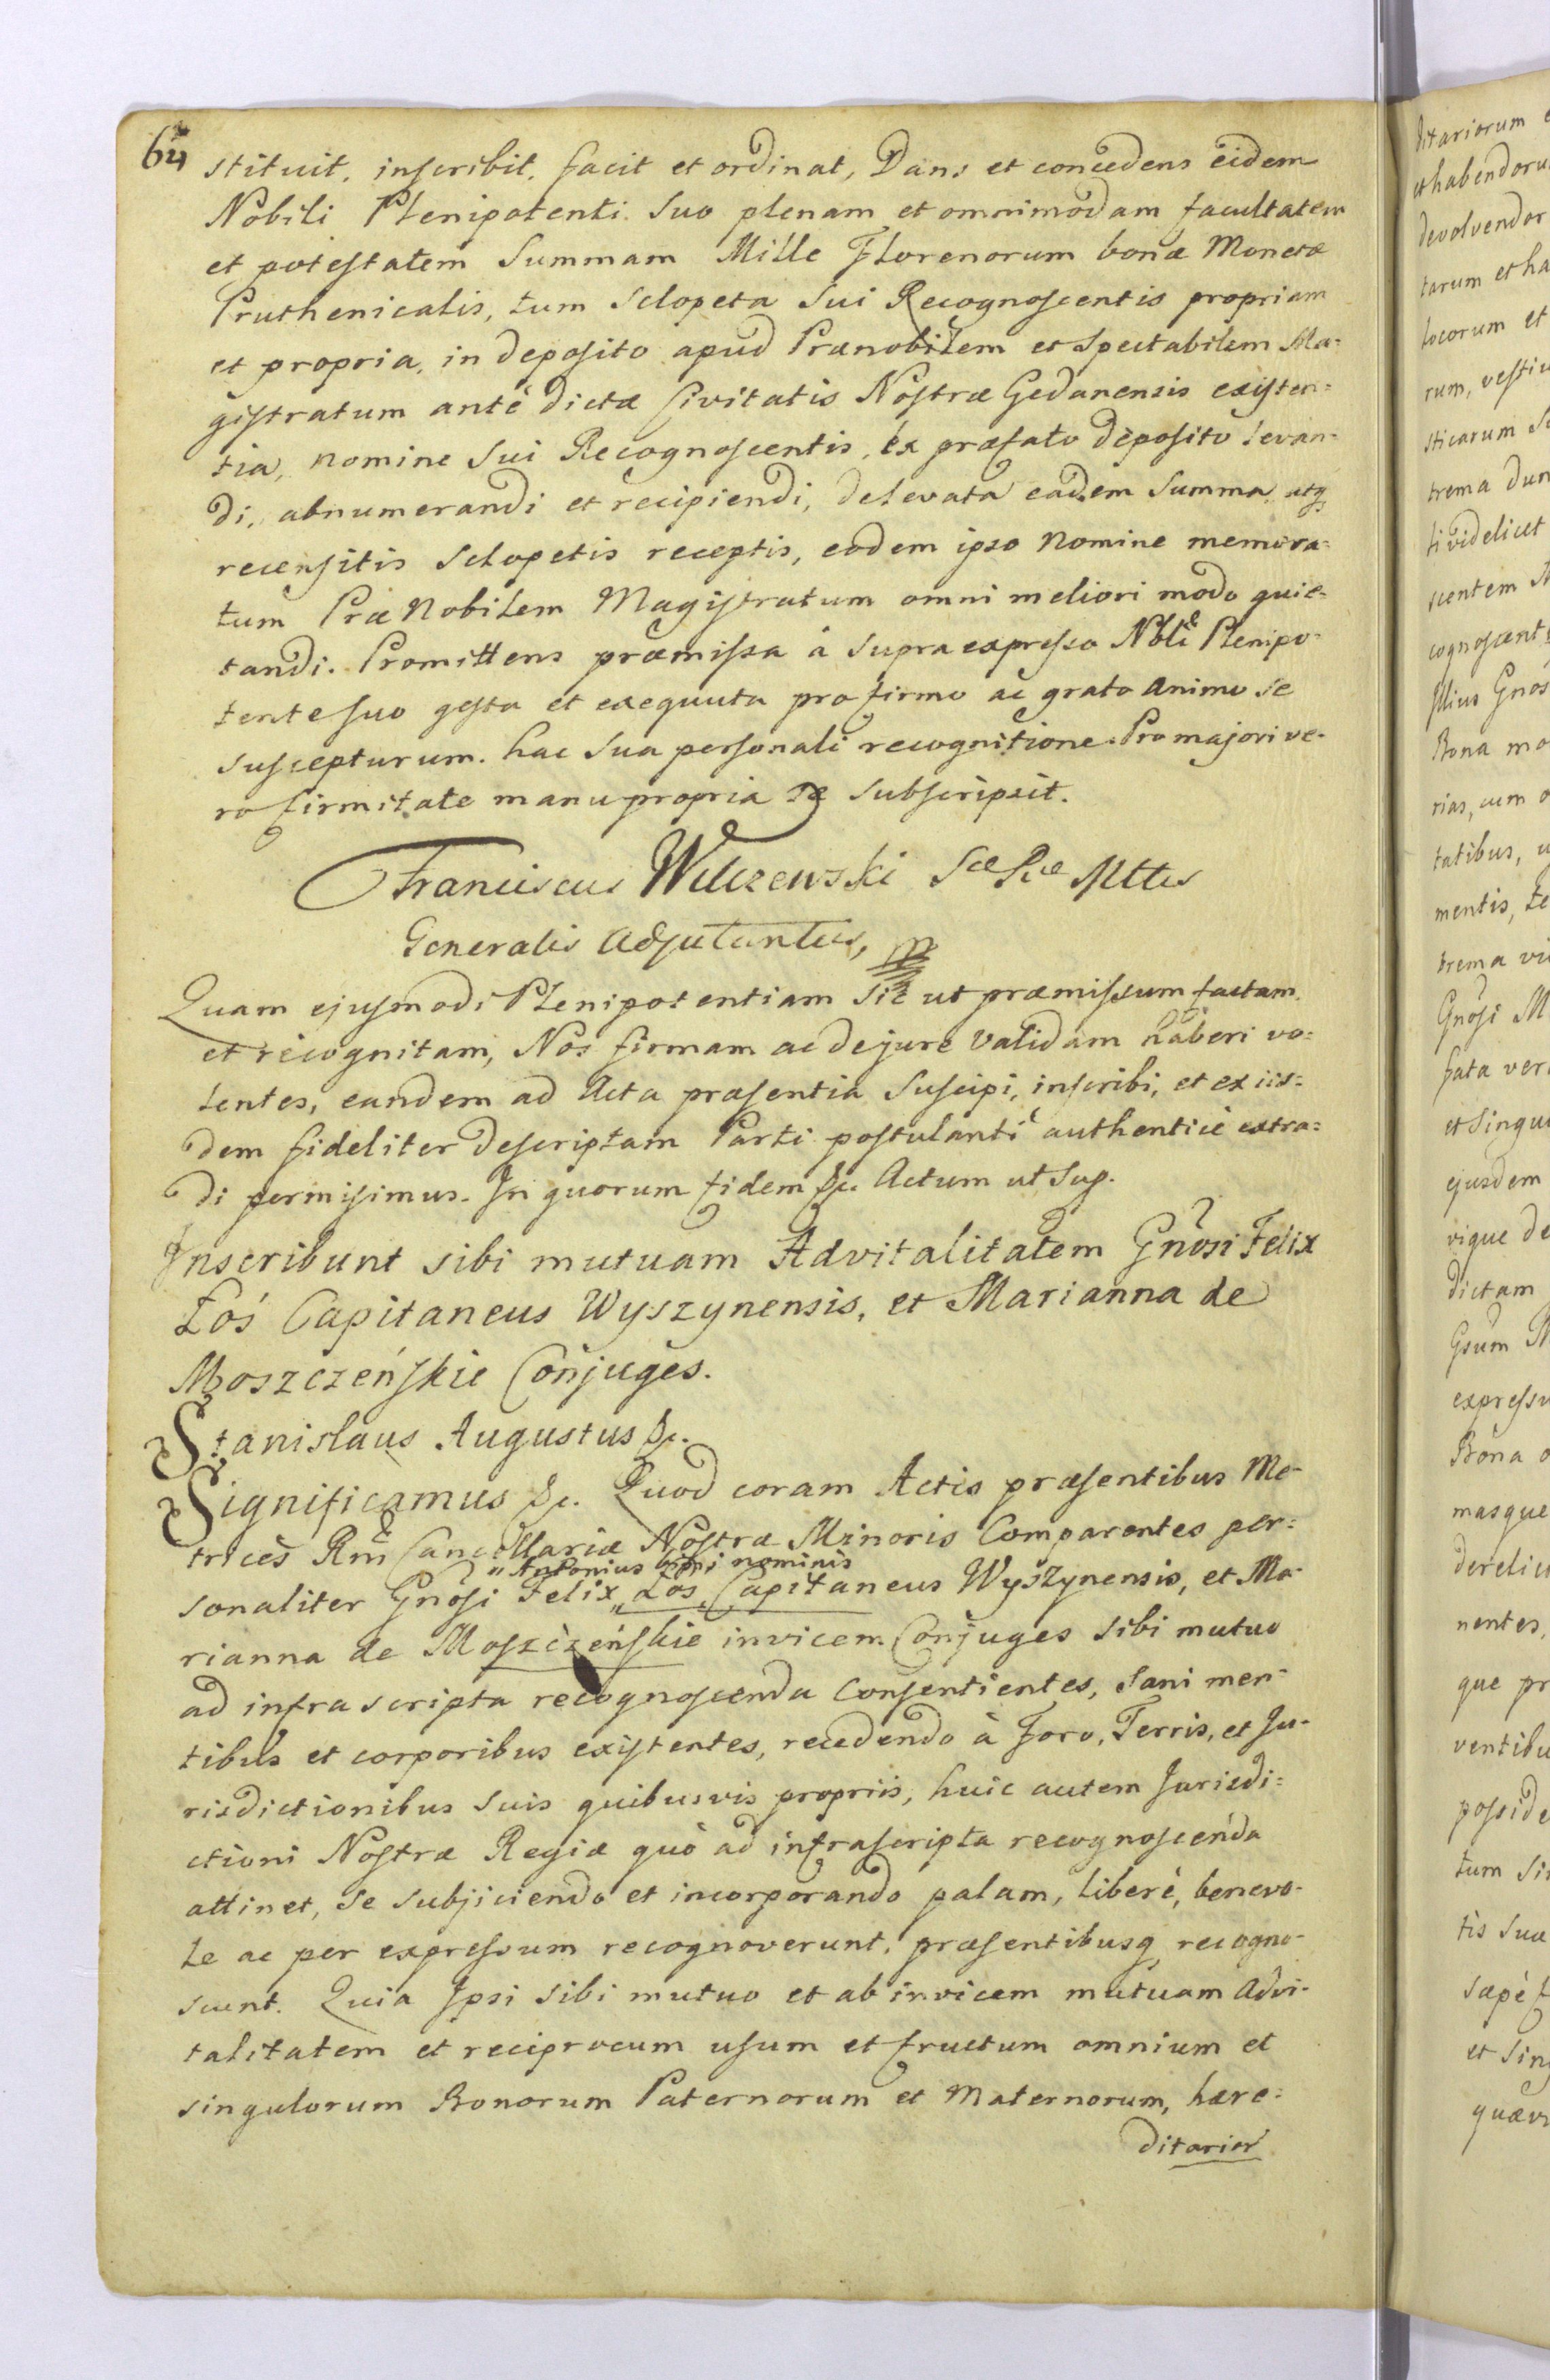 64
stituit, inscribit, facit et ordinat, Dans et concedens eidem
Nobili Plenipotenti Suo plenam et omnimodam facultatem
et potestatem Summam Mille Florenorum bonæ Monetæ
Pruthenicalis, tum Sclopeta Sui Recognoscentis propriam
et propria, in deposito apud Prænobilem et Spectabilem Ma=
gistratum antè dictæ Civitatis Nostræ Gedanensis existen=
tia, nomine Sui Recognoscentis, ex præfato deposito levan=
di, abnumerandi et recipiendi, de levata eadem Summa atq
recensitis Sclopetis receptis, eodem ipso nomine memora=
tum Præ Nobilem Magistratum omni meliori modo quie=
tandi. Promittens præmissa à supra expresso Nbli Plenipo=
tente suo gesta et exequuta pro firmo ac grato animo se
suscepturum. hac Sua personali recognitione. Pro majori ve=
ro firmitate manu propria se subscripsit.
Franciscus Wilczewski Sæ Ræ Mttis
Generalis Adjutantus, mp
Quam ejusmodi Plenipotentiam sic ut præmissum factam
et recognitam, Nos firmam ac de jure validam haberi vo=
lentes, eandem ad Acta præsentia suscipi, inscribi, et ex iis=
dem fideliter descriptam Parti postulanti authenticè extra=
di permisimus. In quorum fidem &c. Actum ut Sup.
Inscribunt sibi mutuam Advitalitatem Gnosi Felix
Łoś Capitaneus Wyszynensis, et Marianna de
Moszczeńskie Conjuges.
Stanislaus Augustus &c.
Significamus &c. Quod coram Actis præsentibus Me-
trices Rni Cancellariæ Nostræ Minoris Comparentes per=
„ Antonius bini nominis
sonaliter Gnosi Felix „ Łoś, Capitaneus Wyszynensis, et Ma-
rianna de Moszczeńskie invicem Conjuges sibi mutuo
ad infra scripta recognoscenda consentientes, sani men-
tibus et corporibus existentes, recedendo à Foro, Terris, et Ju-
risdictionibus suis quibusvis propriis, huic autem Jurisdi=
ctioni Nostræ Regiæ quò ad infrascripta recognoscenda
attinet, se subjiciendo et incorporando palam, liberè, benevo-
le ac per expressum recognoverunt, præsentibusq recogno-
scunt. Quia Ipsi sibi mutuo et ab invicem mutuam Advi-
talitatem et reciprocum usum et fructum omnium et
singulorum Bonorum Paternorum et Maternorum, hære=
ditarior
ditariorum
et habendoru
devolvendor
tarum et ha
locorum et
rum, vesti
sticarum
trema dun
ti videlicet
scentem
cognoscent
illius Gnos
Bona mo
rias, cum o
tatibus, u
mentis, te
trema vi
Gnosi M
fata ver
et singu
ejusdem
vique de
dictam
Gsum M
express
Bona o
masque
derelic
nentes,
que pr
ventibu
posside
tum si
tis suæ
sæpè f
et sing
quævi